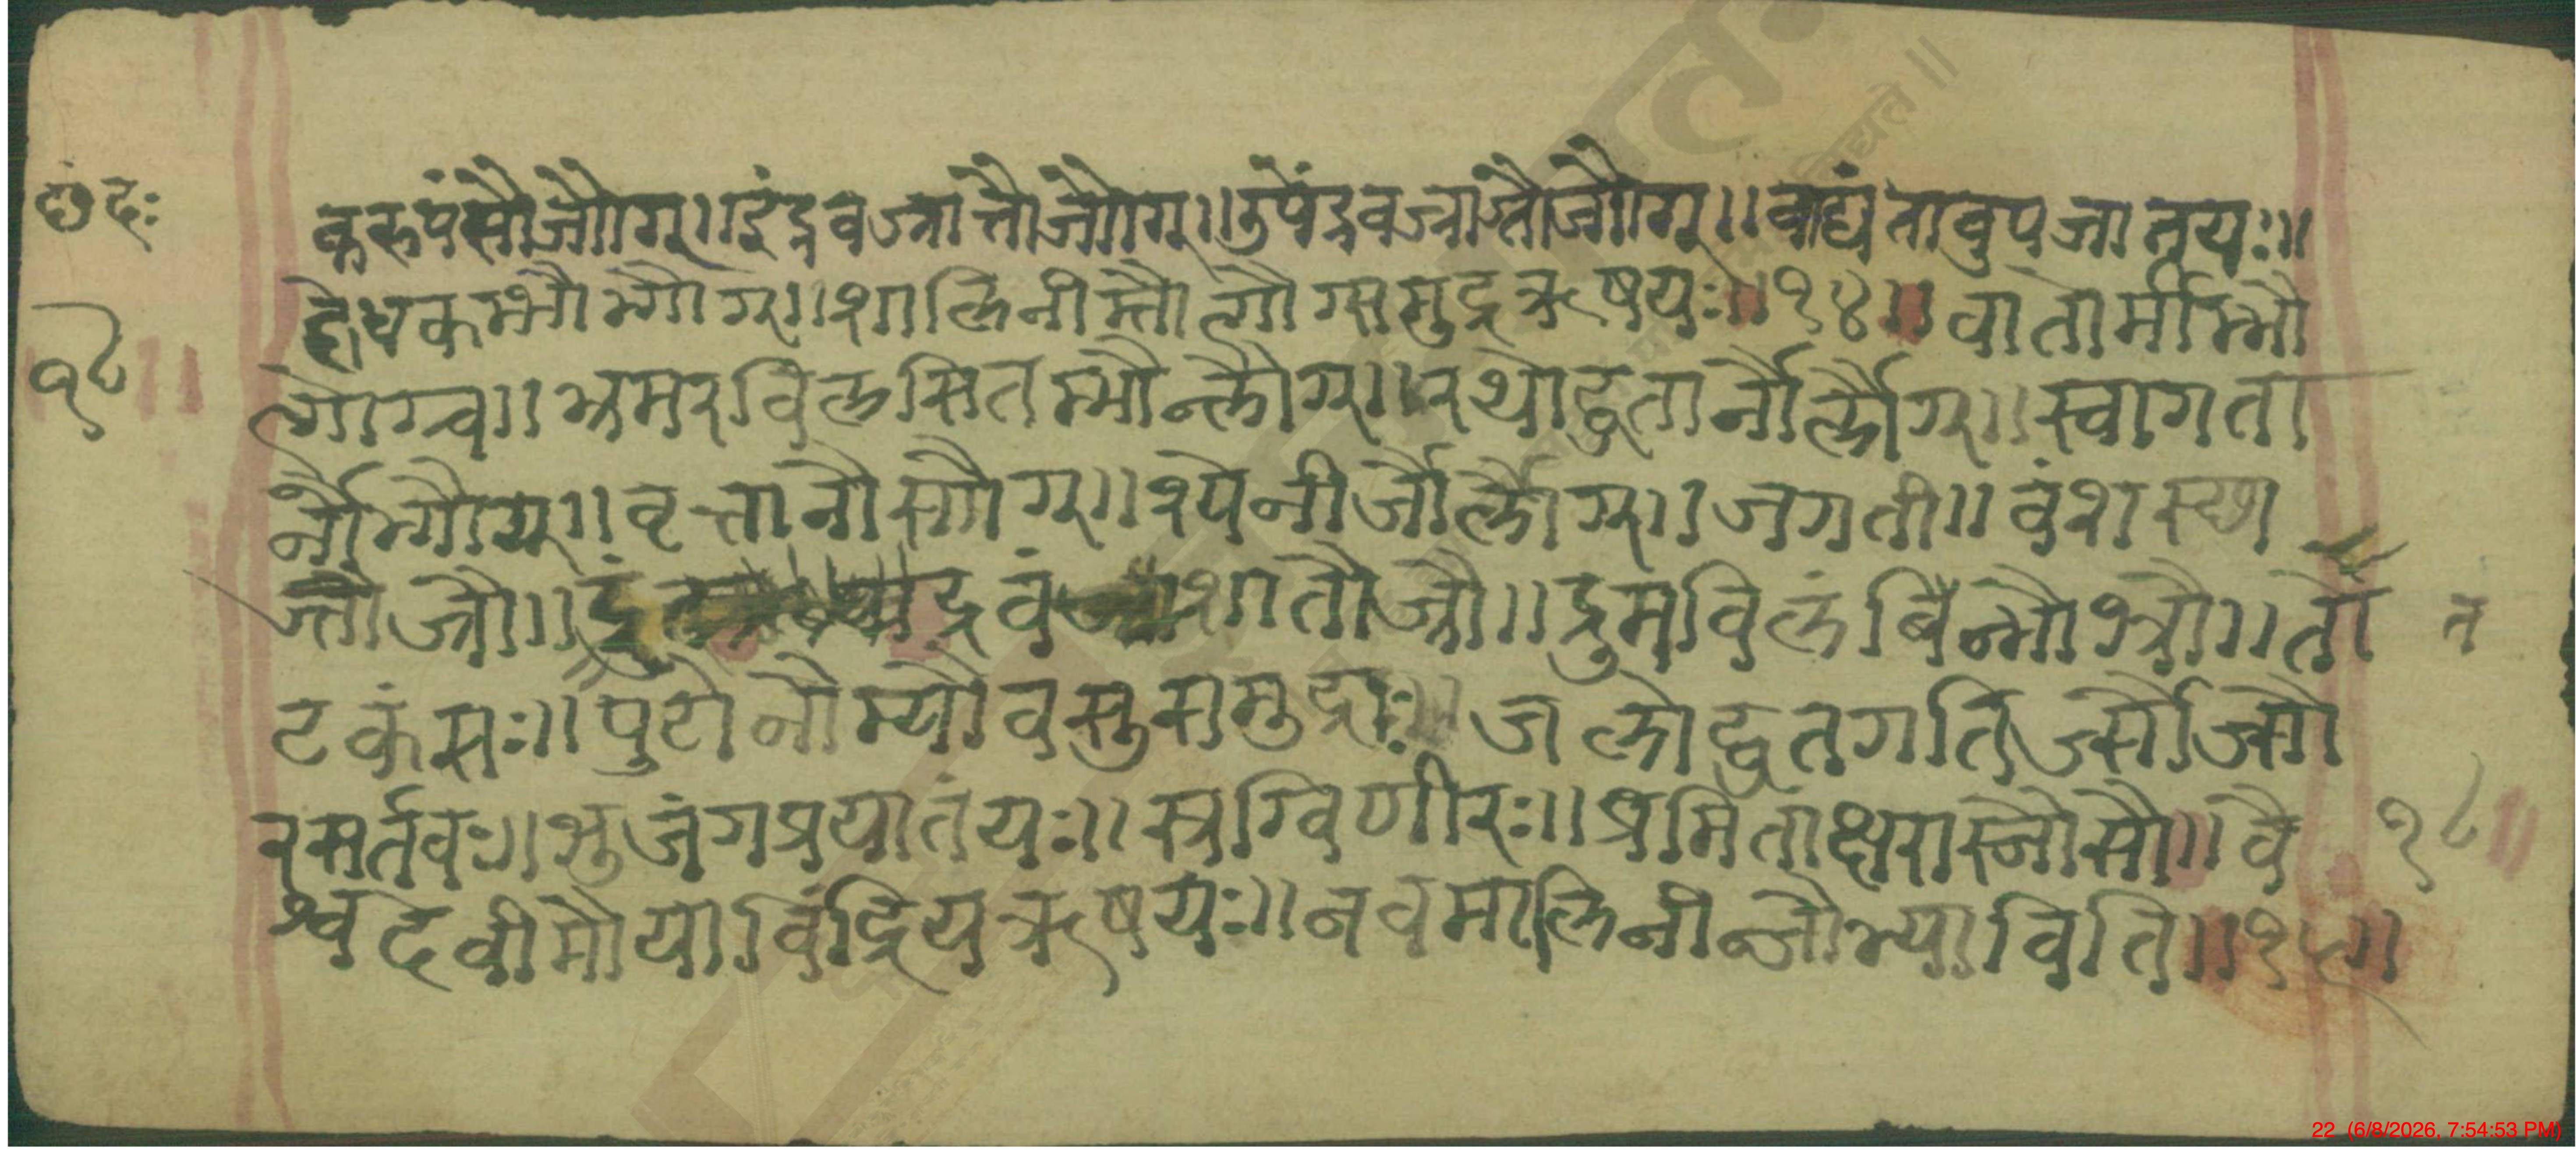 छंदः
क्तरूपंसौजौगू॥इंद्रवज्रातौजौगू॥उपेंद्रवज्राज्तौजौगू॥वाद्यंतावुपजातयः॥
दोधकम्भौभ्गौग्॥शालिनीम्तौत्गौग्समुद्रऋषयः॥१४॥वातोर्मीम्भौ
त्गौग्च॥भ्रमरविलसितम्भौन्लौग्॥रथोद्धतार्नौर्लौग्॥स्वागता
र्नौभ्गौग्॥वृत्तानौस्गौग्॥श्येनीर्जौर्लौग्॥जगती॥वंशस्छा
ज्तौज्रौ॥इंद्रवंशातौज्रौ॥द्रुमविलंबिन्भौभ्रौ॥तो
त
टकंसः॥पुटोनौम्यौवसुसमुद्राः॥जलोद्धतगतिर्ज्सौज्सौ
रसर्तवः॥भुजंगप्रयातंयः॥स्रग्विणीरः॥प्रमिताक्षरास्जौसौ॥वै
श्वदेवीमौयाविंद्रियऋषयः॥नवमालिनीन्जौभ्याविति॥१५॥
१८
१८॥
22 (6/8/2026, 7:54:53 PM)